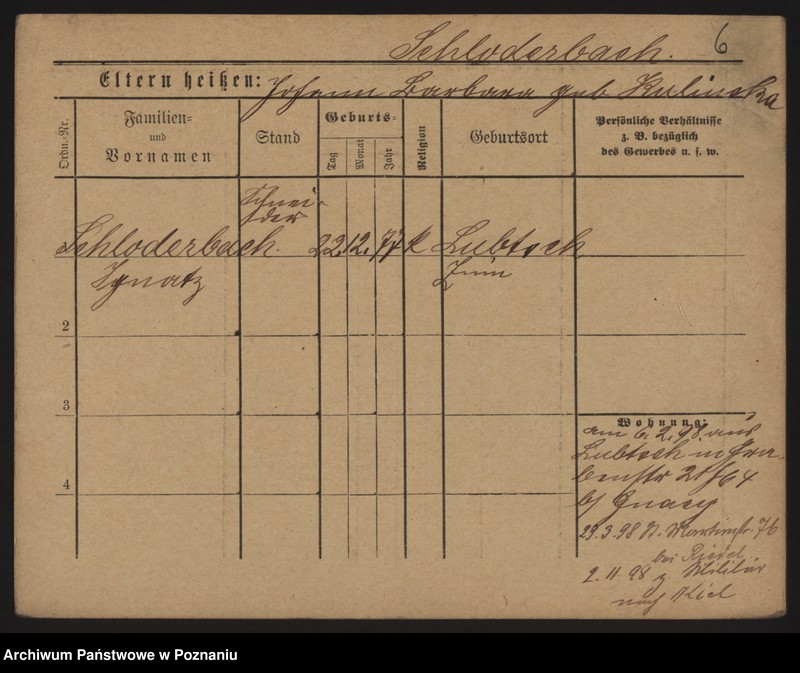 Schloderbach. 6
Eltern heißen: Johann Barbara geb Kulinska
Ordn.-Nr.
Familien- und Vornamen
Stand
Geburts-
Tag
Monat
Jahr
Religion
Geburtsort
Persönliche Verhältnisse
z. B. bezüglich
des Gewerbes u. s. w.
Schnei-
der
Schloderbach. 22. 12. 77 k Lubtsch
Ignatz Znin
2
3
4
Wohnung:
am 6. 2. 98. aus
Lubtsch n Gra-
benstr
b/ Gnacy
29. 3. 98 St. Martinstr. 76
bei Riedel
2. 11. 98 z. Militär
nach Kiel
Archiwum Państwowe w Poznaniu